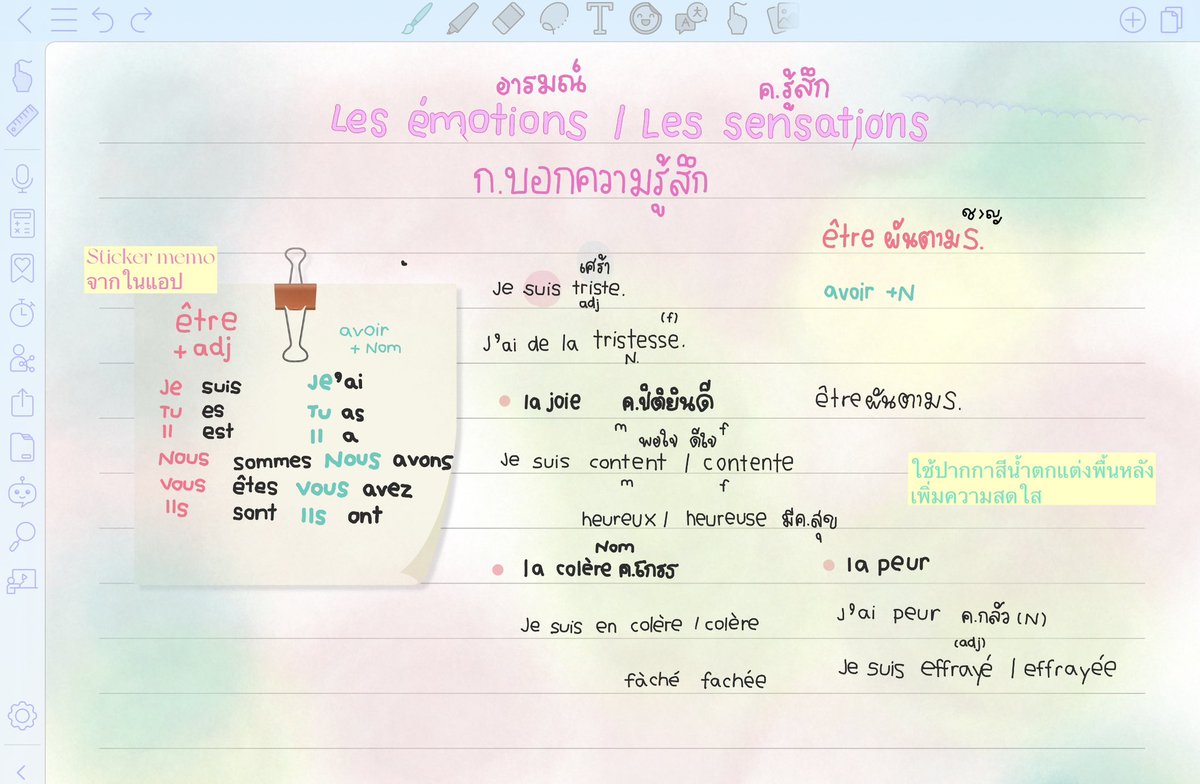 อารมณ์ ค.รู้สึก
Les émotions / Les sensations
ก.บอกความรู้สึก
ช>ญ
être ผันตาม S.
avoir +N
Sticker memo
จากในแอป
être
+ adj
avoir
+ Nom
Je suis Je'ai
Tu es Tu as
Il est Il a
Nous sommes Nous avons
Vous êtes Vous avez
Ils sont Ils ont
เศร้า
Je suis triste.
adj
(f)
J'ai de la tristesse.
N.
la joie ค.ปิติยินดี
être ผันตาม S.
m พอใจ ดีใจ f
Je suis content / contente
m f
heureux / heureuse มีค.สุข
ใช้ปากกาสีน้ำตกแต่งพื้นหลัง
เพิ่มความสดใส
Nom
la colère ค.โกรธ
Je suis en colère / colère
fàché fachée
la peur
J'ai peur ค.กลัว (N)
(adj)
Je suis effrayé / effrayée